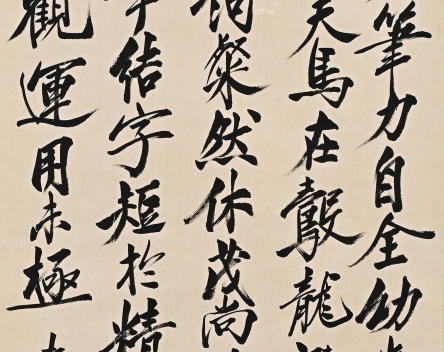 筆力自全幼
天馬在龍
粲然休茂尚
結字短於精
觀運用未極